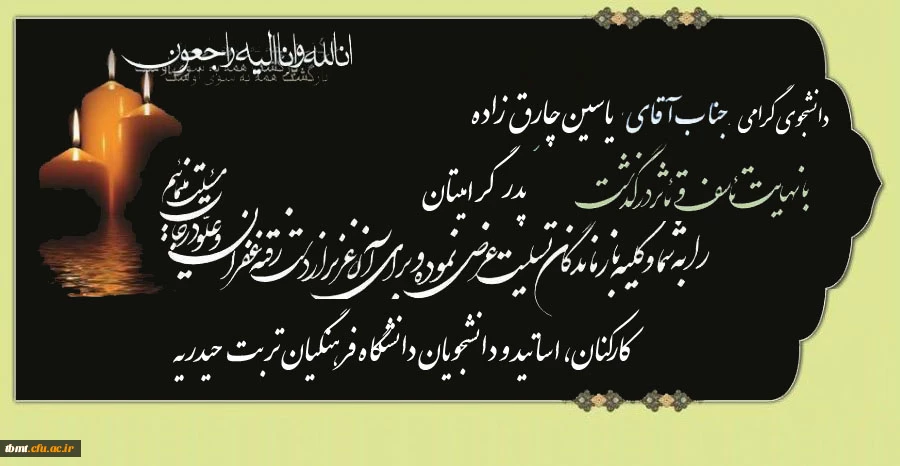 انا لله و انا الیه راجعون
بازگشت همه به سوی اوست
دانشجوی گرامی جناب آقای یاسین چارق زاده
با نهایت تاسف و تاثر درگذشت پدر گرامیتان
را به شما و کلیه بازماندگان تسلیت عرض نموده و برای آن عزیز از دست رفته غفران و علو درجات مسئلت مینمائیم
کارکنان، اساتید و دانشجویان دانشگاه فرهنگیان تربت حیدریه
tbmt.cfu.ac.ir